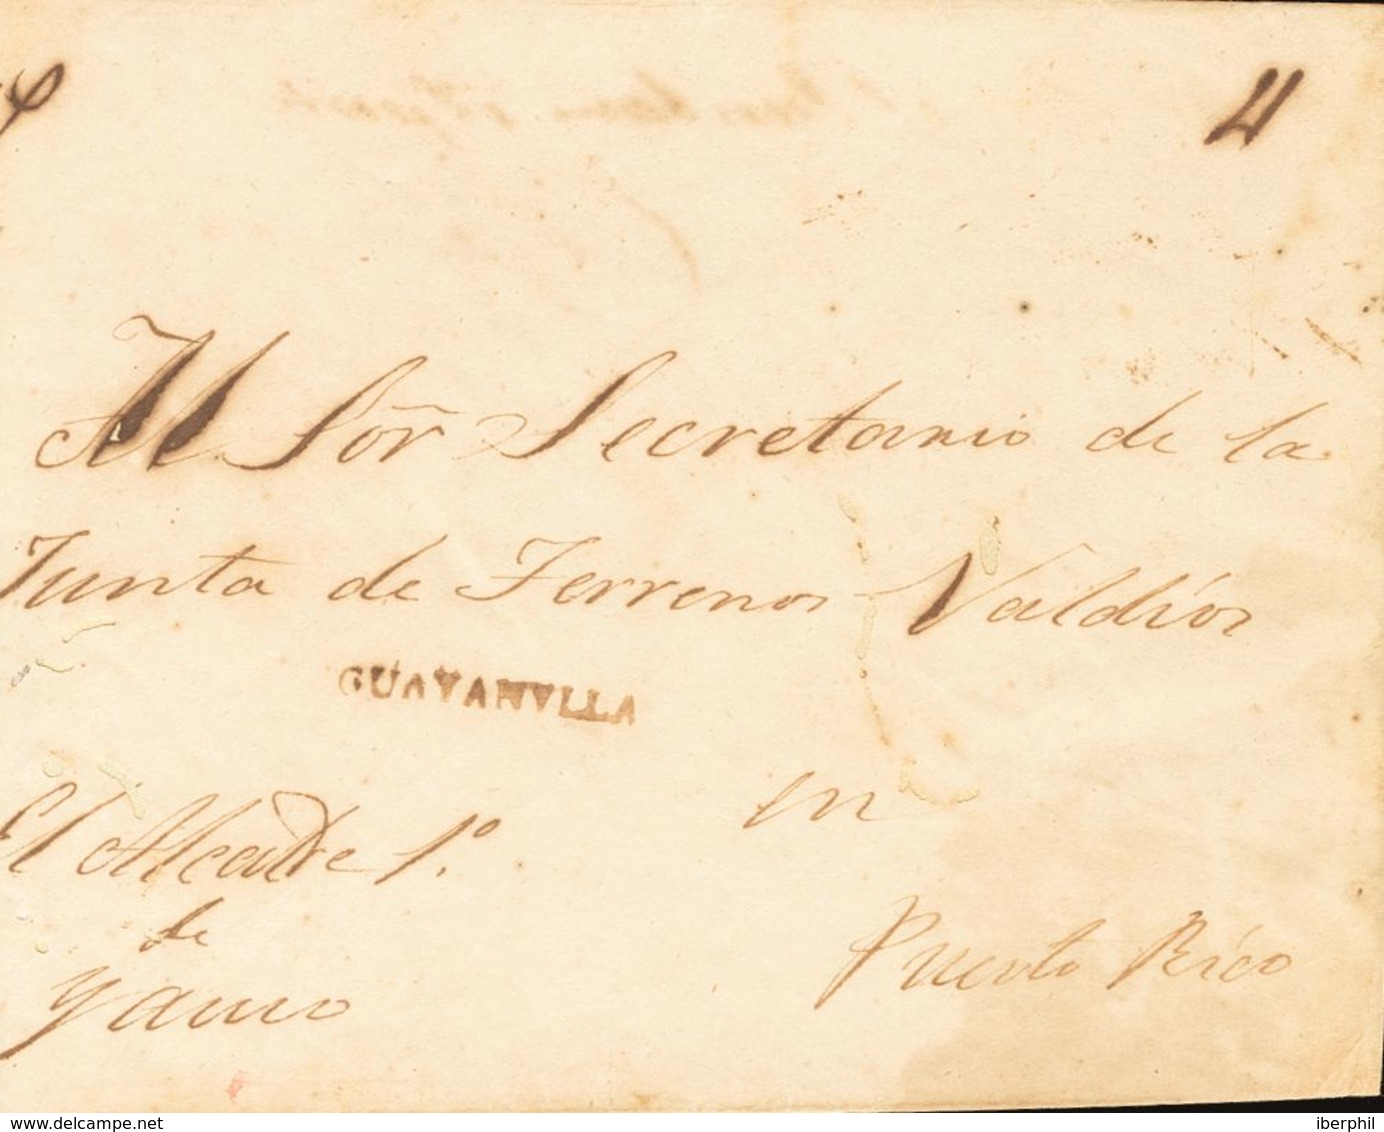 4
Al Sõr Secretario de la
Junta de Terrenos Valdíos
GUAYANVLLA
en
El Alcalde 1.º
de
Yauco
Puerto Rico
www.delcampe.net
iberphil